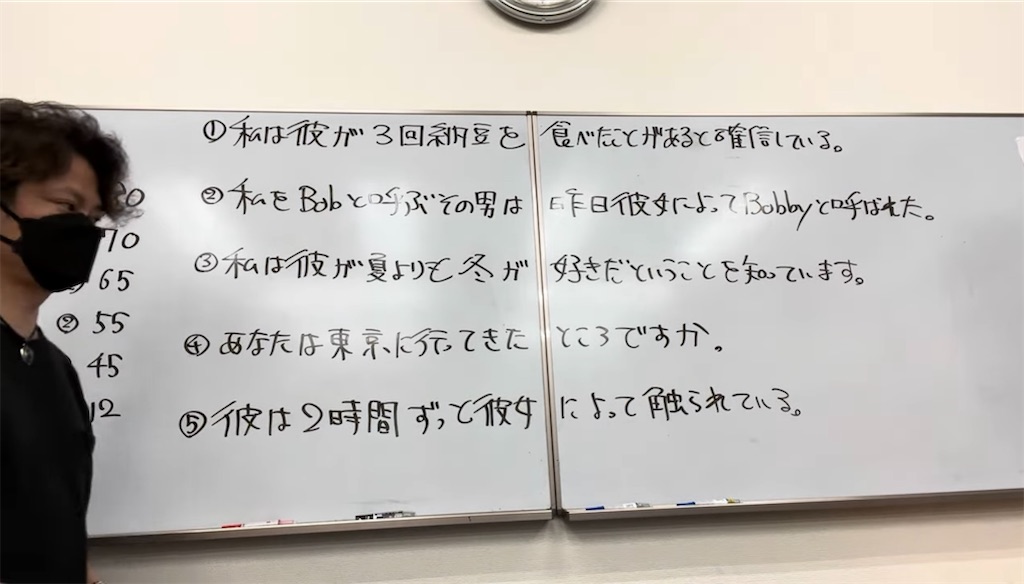 ①私は彼が3回納豆を食べたことがあると確信している。
②私をBobと呼ぶその男は昨日彼女によってBobbyと呼ばれた。
③私は彼が夏よりも冬が好きだということを知っています。
④あなたは東京に行ってきたところですか。
⑤彼は2時間ずっと彼女によって触られている。
70
65
② 55
45
12